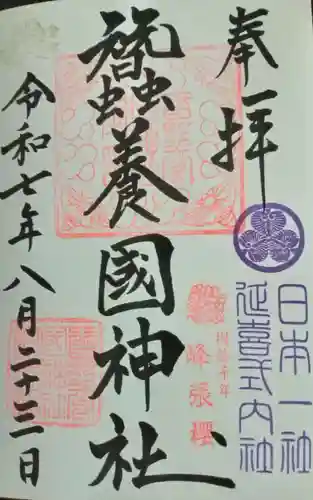 奉拝
日本一社
延喜式内社
樹齢千年
峰張櫻
蠶養國神社
令和七年八月二十三日